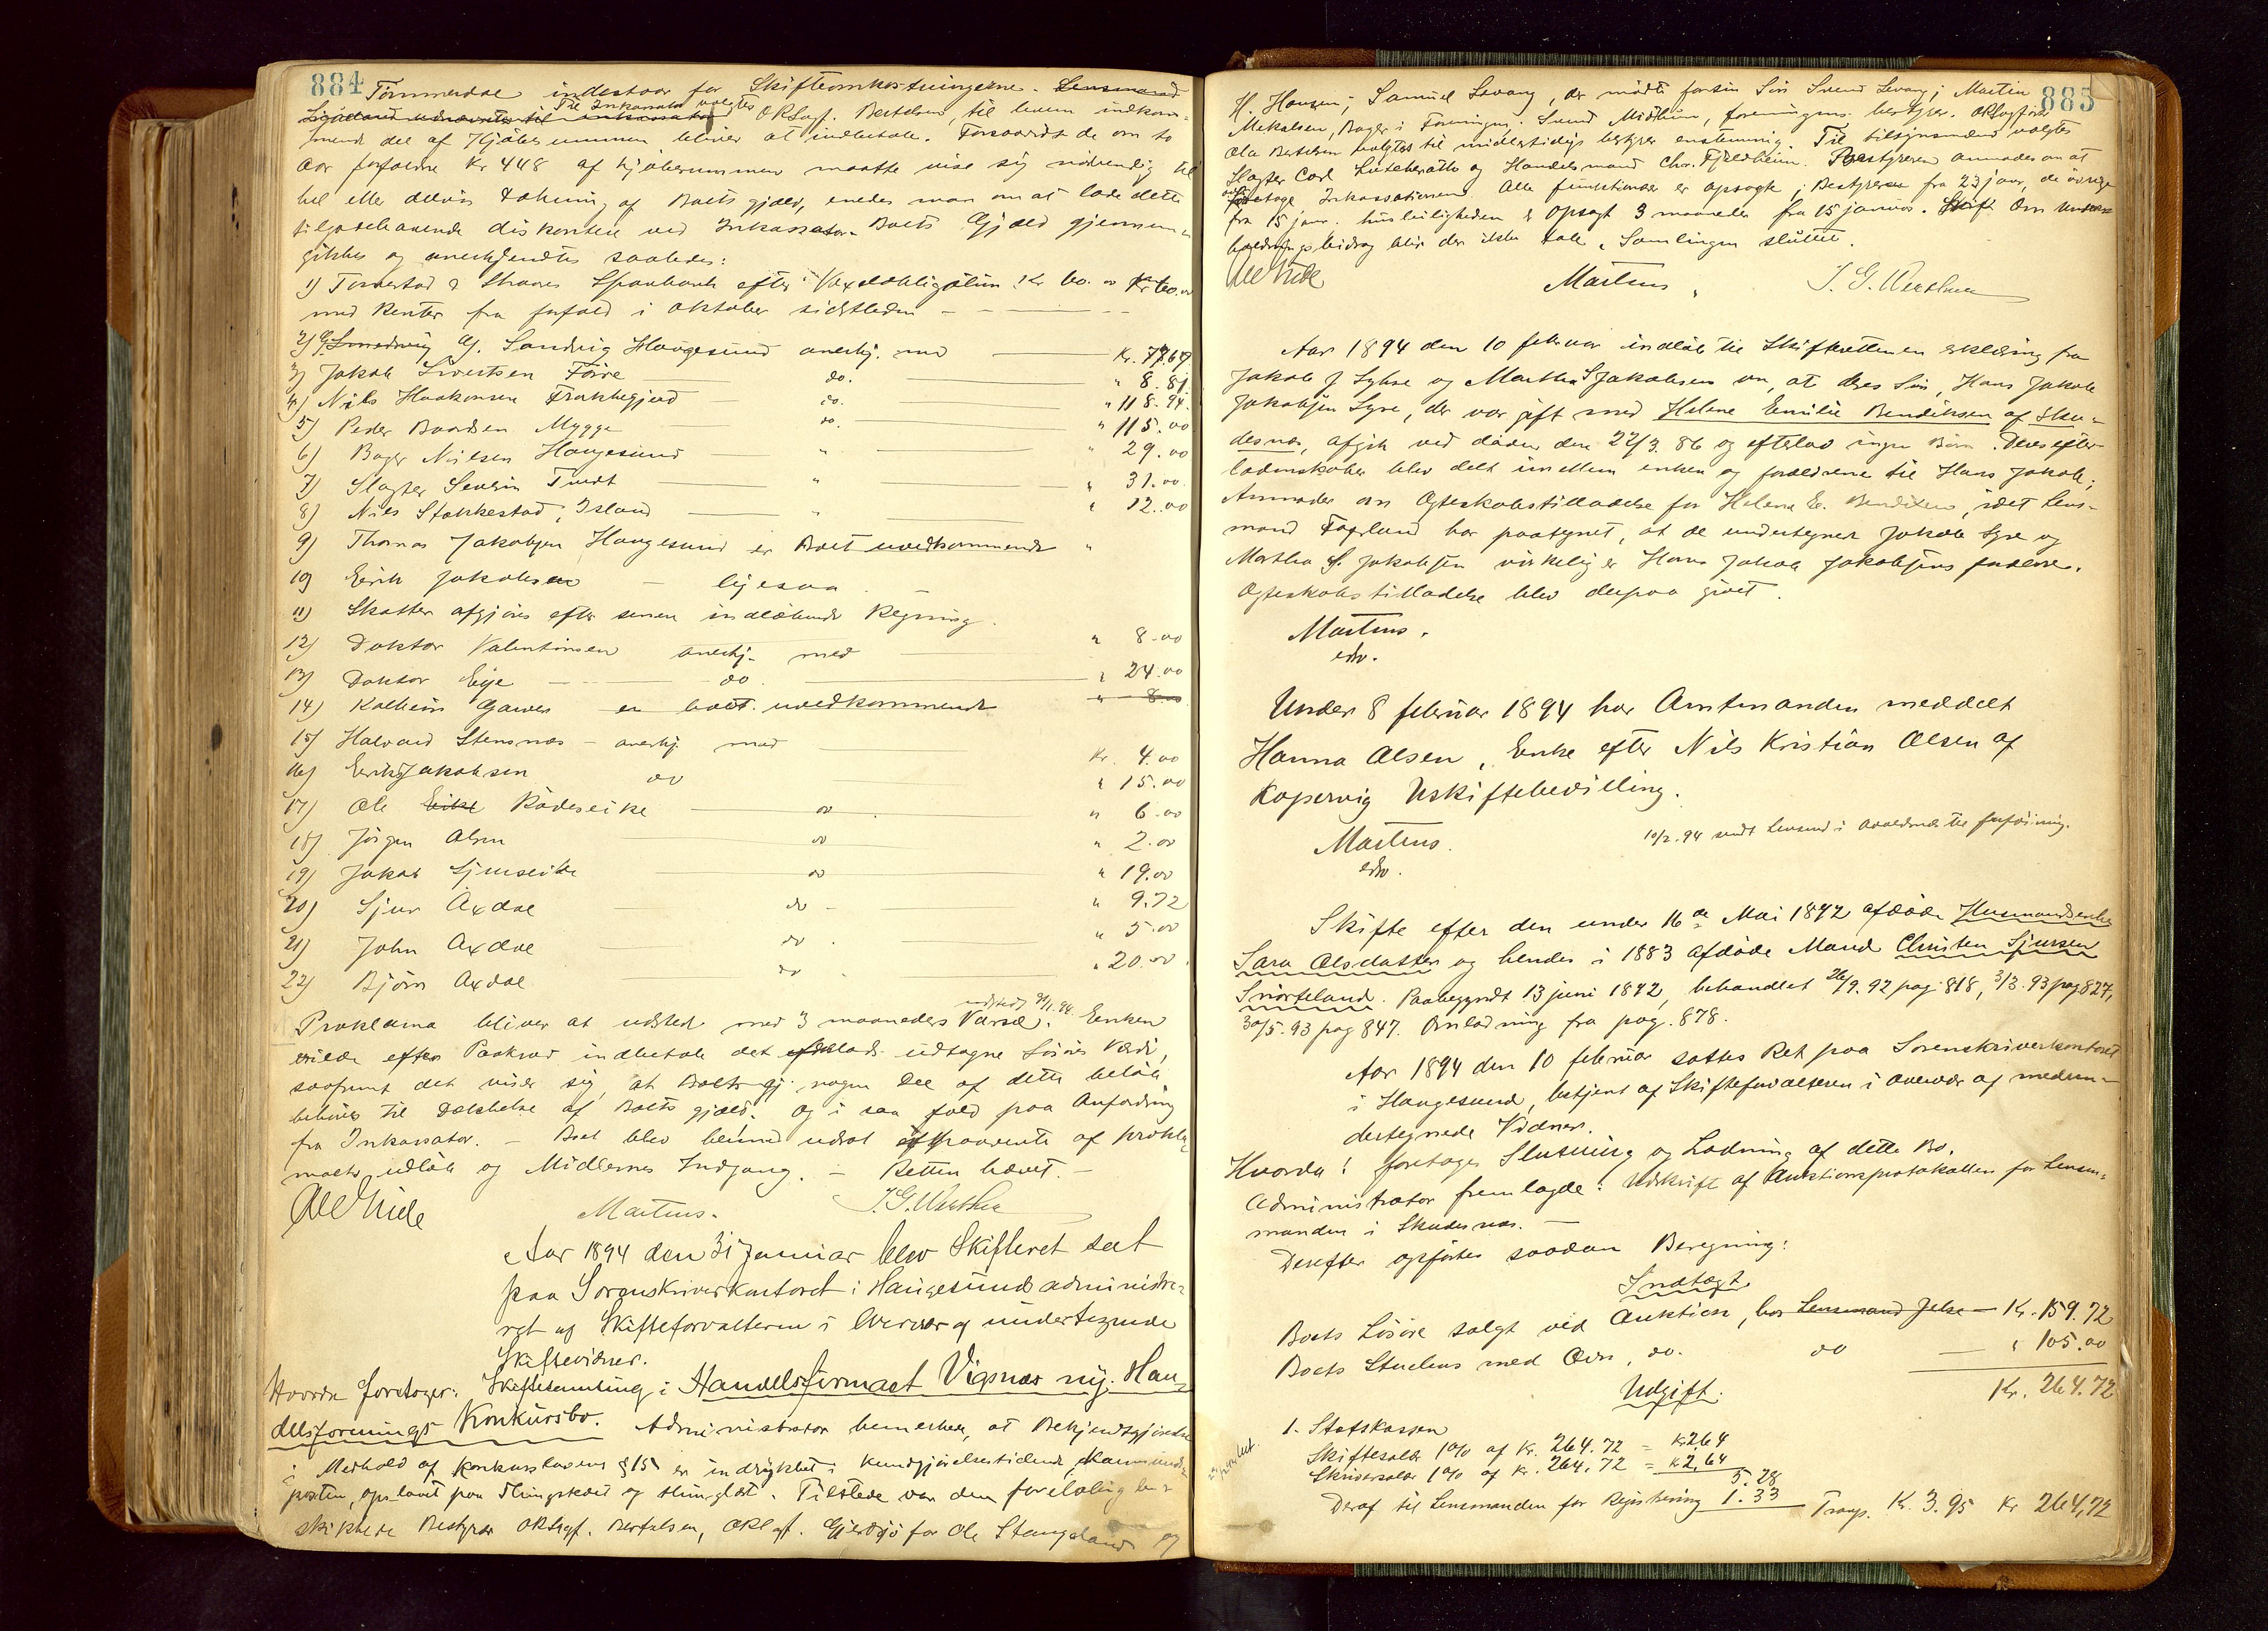 884
Tømmerdal indestaar for Skifteomkostningerne. Lensmand
Til Inkassator valgtes ORSagf. Bertelsen, til hvem indkom-
mende del af Kjøbesummen bliver at indbetale. Forsaavidt de om to
Aar forfaldne Kr 448 af Kjøbesummen maatte vise sig nødvendig til
hel eller delvis dækning af Boets gjæld, enedes man om at lade dette
tilgodehavende diskontere ved Inkassator. Boets Gjæld gjennem-
gikkes og anerkjendtes saaledes:
1) Torvestad & Skaare Sparebank efter Vexelobligation Kr 60.00 Kr 60.00
med Renter fra forfald i Oktober sidstleden
2) G. Sandvig Haugesund anerkj. med Kr. 77.67
3) Jakob Sivertsen Føire do. " 8.81
4) Nils Haakonsen Frakkegjerd do. " 118.94
5) Peder Baardsen Mygge do. " 115.00
6) Bager Nielsen Haugesund " " 29.00
7) Slagter Severin Tvedt " " 31.00
8) Nils Stakkestad, Island " " 12.00
9) Thomas Jakobsen Haugesund er Boet uvedkommende "
10) Eirik Jakobsen — ligesaa
11) Skatter afgjøres efter senere indløbende Regning.
12) Doktor Valentinsen anerkj. med " 8.00
13) Doktor Eye do " 24.00
14) Kolbein Gauer er boet uvedkommende " 8.00
15) Halvard Stensnæs — anerkj. med Kr. 4.00
16) Eirik Jakobsen do " 15.00
17) Ole Eike Rødeseike do " 6.00
18) Jørgen Olsen do " 2.00
19) Jakob Sjurseike do " 19.00
20) Sjur Axdal do " 9.72
21) John Axdal do " 5.00
22) Bjørn Axdal do " 20.00
udstedt 31/1.94.
Proklama bliver at udstede med 3 maaneders Varsel. Enken
vilde efter Paakrav indbetale det udtagne Løsøres Værdi,
saafremt det viser sig, at Boets gj. nogen Del af dette beløb
behøves til Dækkelse af Boets gjæld, og i saa fald paa Anfordring
fra Inkassator. — Boet blev hermed udsat i paavente af prokla-
maets udløb og Midlernes Indgang. — Retten hævet. —
Martens. J. G. Werthen
Aar 1894 den 31 Januar blev Skifteret sat
paa Sorenskriverkontoret i Haugesund administre-
ret af Skifteforvalteren i Overvær af undertegnede
Skiftevidner.
Hvorda foretoges: Skiftesamling i Handelsfirmaet Vigsnæs ny. Han-
delsforenings Konkursbo. Administrator bemerkede, at Bekjendtgjørelse
i Medhold af Konkurslovens § 15 er indrykket i Kundgjørelsestidende, Karmsunds-
posten, opslaaet paa Thingstedet og thinglæst. Tilstede var den foreløbig be-
skikkede Bestyrer ORSagf. Bertelsen, ORSagf. Gjerdsjø for Ole Stangeland og
885
H. Hansen; Samuel Levang, der mødte for sin Søn Svend Levang; Martin
Mikalsen, Bager i Foreningen; Svend Midtun, foreningens bestyrer. ORSagfører
Ola Bertelsen valgtes til midlertidig bestyrer enstemmig. Til tilsynsmænd valgtes
Slagter Carl Lütcherath og Handelsmand Chr. Fjeldheim. Bestyreren anmodes om at
foretage Inkassationen. Alle funktionær er opsagte; Bestyreren fra 23 jan, de øvrige
fra 15 jan. Husleiligheden er opsagt 3 maaneder fra 15 januar. Om Under-
holdningsbidrag blir der ikke tale. Samlingen sluttet.
Martens. J. G. Werthen
Aar 1894 den 10 februar indløb til Skifteretten en erklæring fra
Jakob J Syre og Martha S Jakobsen om, at deres Søn, Hans Jakob
Jakobsen Syre, der var gift med Helene Emilie Bendiksen af Sku-
desnæs, afgik ved døden den 22/3. 86 og efterlod ingen Børn. Deres efter-
ladenskaber blev delt imellem enken og forældrene til Hans Jakob;
Anmoder om Ægteskabstilladelse for Helene E. Bendixen, idet Lens-
mand Fagland har paategnet, at de undertegnede Jakob Syre og
Martha S. Jakobsen virkelig er Hans Jakob Jakobsens forældre.
Ægteskabstilladelse blev derpaa givet.
Martens.
edv.
Under 8 februar 1894 har Amtmanden meddelt
Hanna Olsen, Enke efter Nils Kristian Olsen af
Kopervig Uskiftebevilling.
Martens.
edv.
10/2.94 sendt Lensmd i Avaldsnæs til forføining.
Skifte efter den under 16de Mai 1892 afdøde Husmandsenke
Sara Olsdatter og hendes i 1883 afdøde Mand Christen Sjursen
Snørteland. Paabegyndt 13 juni 1892, behandlet 26/9.92 pag. 818, 3/3.93 pag 827,
30/5.93 pag 847. Omladning fra pag. 878.
Aar 1894 den 10 februar sattes Ret paa Sorenskriverkontoret
i Haugesund, betjent af Skifteforvalteren i overvær af medun-
dertegnede Vidner.
Hvorda: foretoges Slutning og Lodning af dette Bo.
Administrator fremlagde: Udskrift af Auktionsprotokollen for Lens-
manden i Skudesnæs. —
Derefter opførtes saadan Beregning:
Indtægt
Boets Løsøre solgt ved Auktion, hos Lensmand Jelse — Kr. 159.72
Boets Stuehus med Ovn, do. do — " 105.00
Kr. 264.72
Udgift.
1. Statskassen
Skiftesalær 1% af Kr. 264.72 = Kr 2.64
Skriversalær 1% af Kr. 264.72 = Kr 2.64
5.28
Deraf til Lensmanden for Registrering 1.33 Transp. Kr. 3.95 Kr 264,72